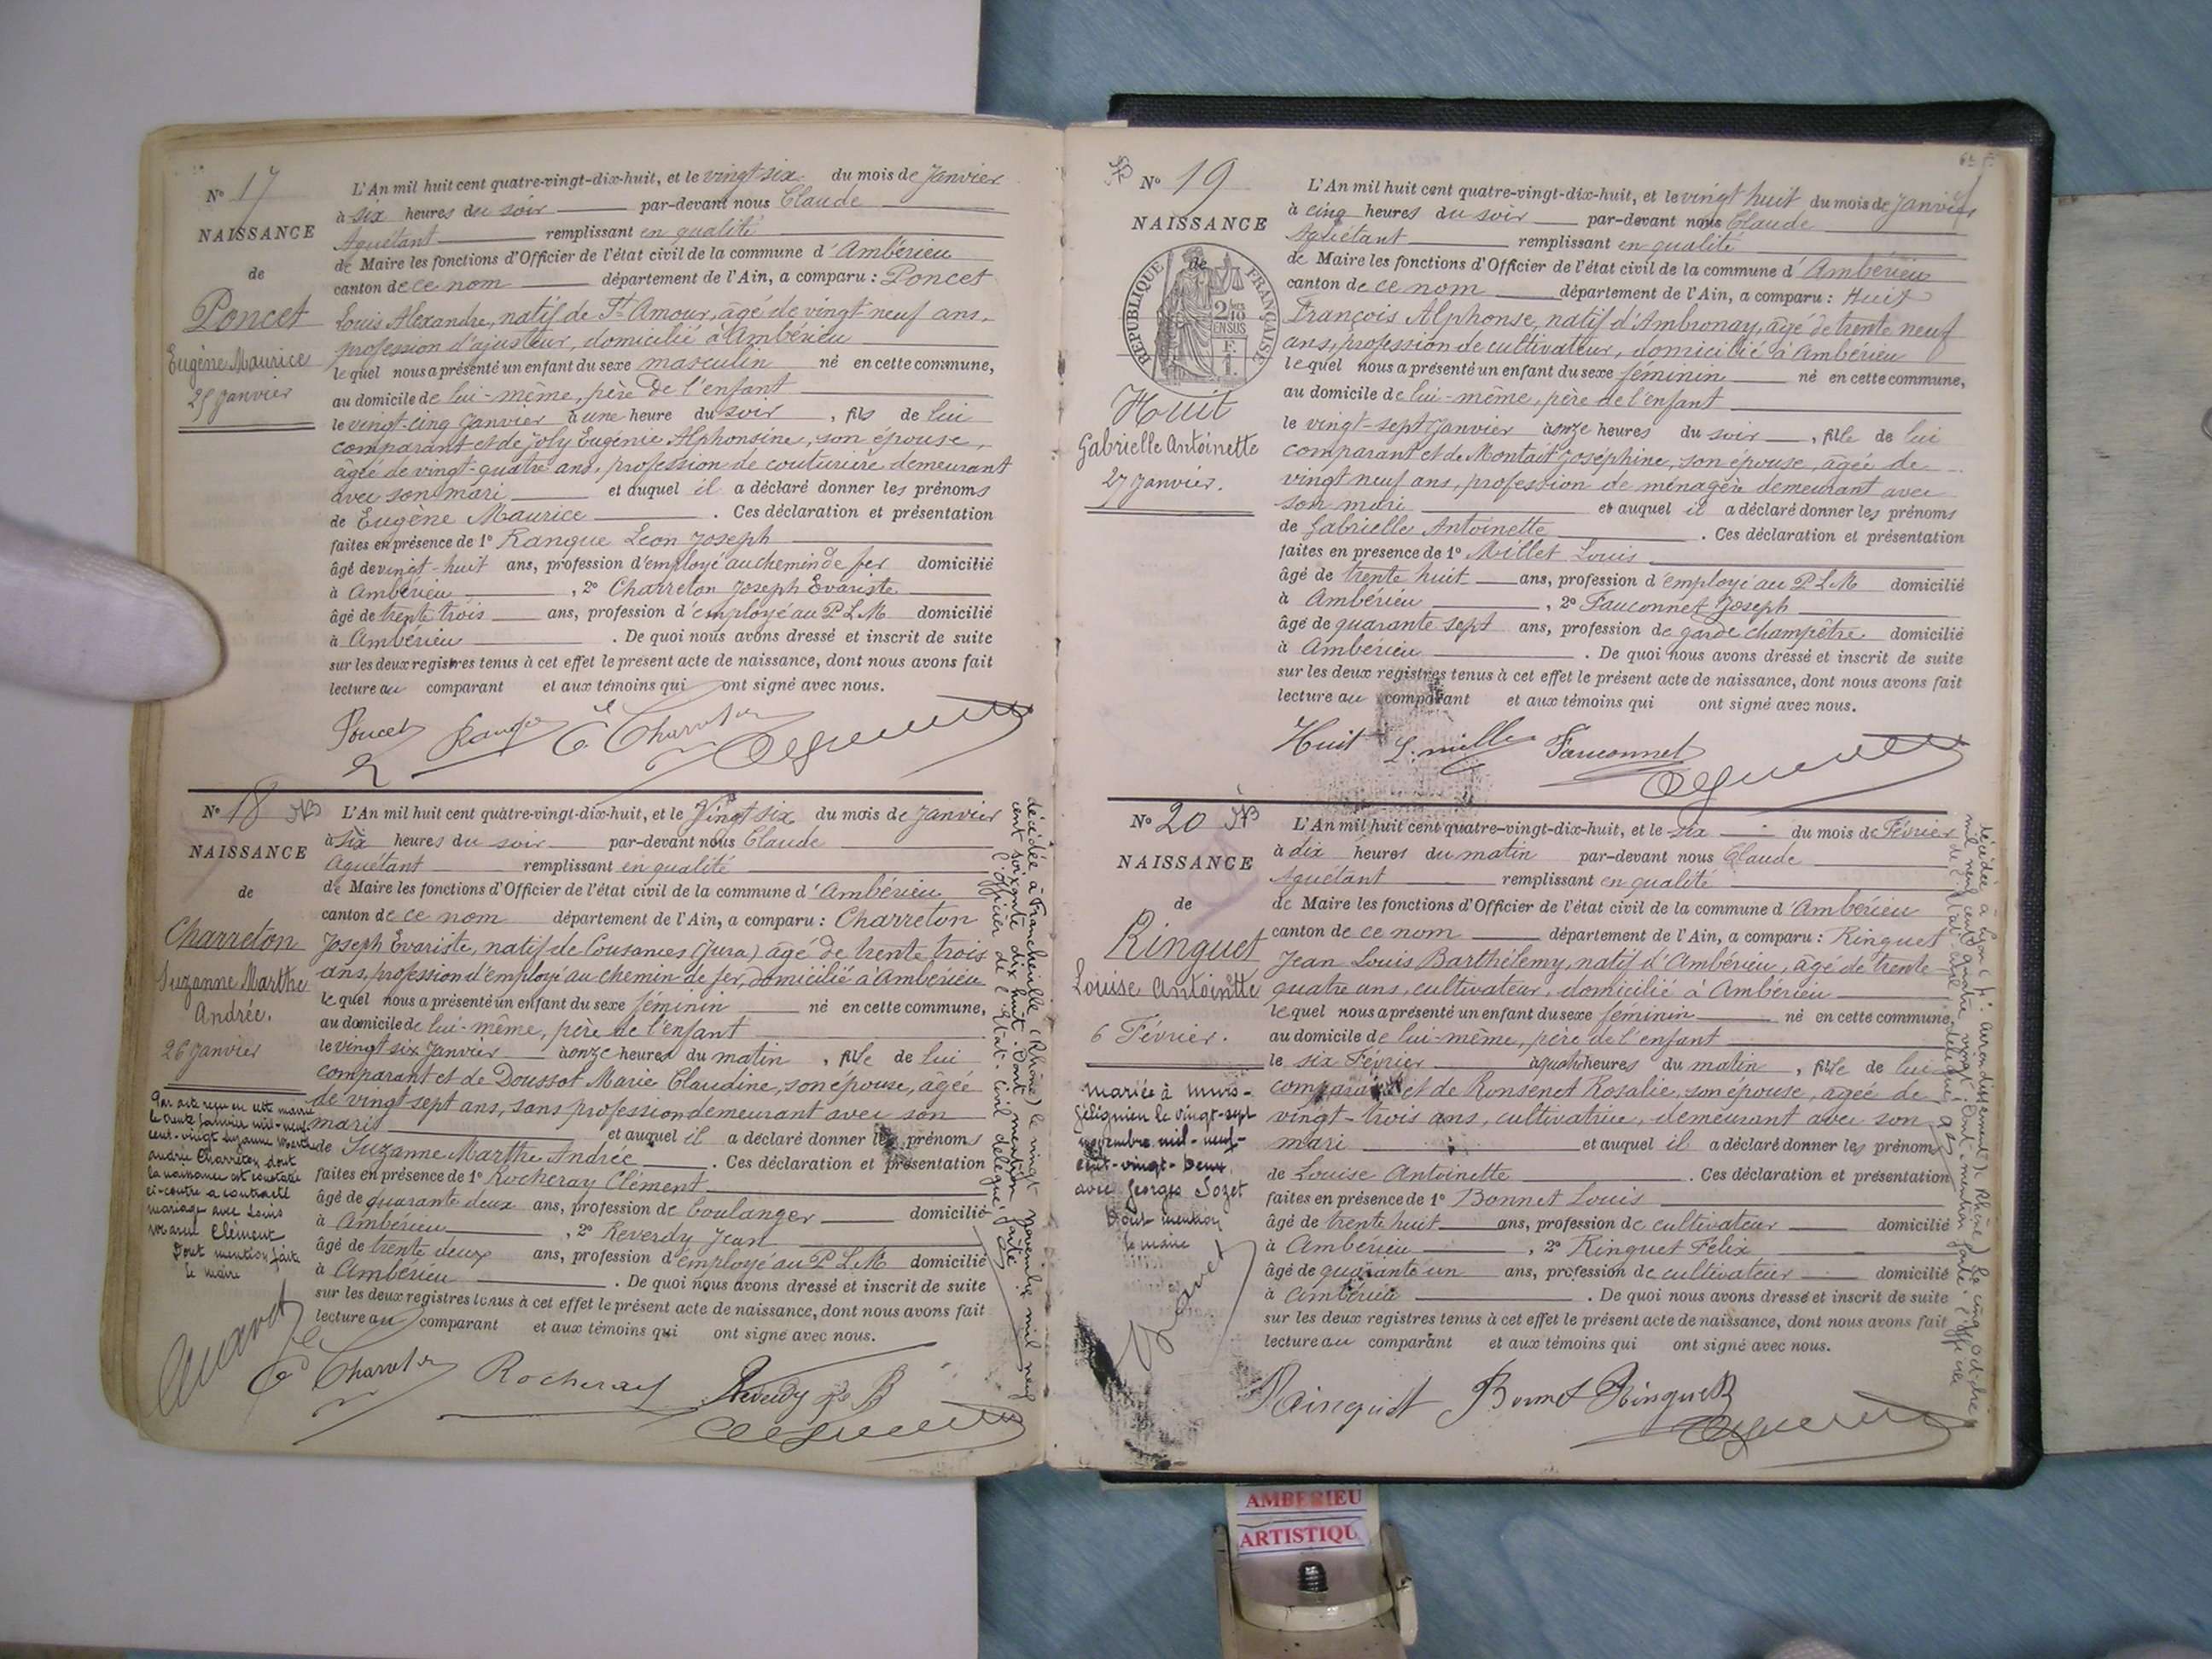 N° 17
NAISSANCE
de
Poncet
Eugène Maurice
25 Janvier
L'An mil huit cent quatre-vingt-dix-huit, et le vingt six du mois de Janvier
à six heures du soir par-devant nous Claude
Aguétant remplissant en qualité
de Maire les fonctions d'Officier de l'état civil de la commune d'Ambérieu
canton de ce nom département de l'Ain, a comparu : Poncet
Louis Alexandre, natif de St Amour, âgé de vingt neuf ans,
profession d'ajusteur, domicilié à Ambérieu
lequel nous a présenté un enfant du sexe masculin né en cette commune,
au domicile de lui-même, père de l'enfant
le vingt-cinq Janvier à une heure du soir, fils de lui
comparant et de Joly Eugénie Alphonsine, son épouse,
âgée de vingt-quatre ans, profession de couturière demeurant
avec son mari et auquel il a déclaré donner les prénoms
de Eugène Maurice. Ces déclaration et présentation
faites en présence de 1° Ranque Léon Joseph
âgé de vingt-huit ans, profession d'employé au chemin de fer domicilié
à Ambérieu, 2° Charreton Joseph Evariste
âgé de trente trois ans, profession d'employé au P L M domicilié
à Ambérieu. De quoi nous avons dressé et inscrit de suite
sur les deux registres tenus à cet effet le présent acte de naissance, dont nous avons fait
lecture au comparant et aux témoins qui ont signé avec nous.
Poncet
N° 18
NAISSANCE
de
Charreton
Suzanne Marthe
Andrée.
26 Janvier
Par acte reçu en cette mairie
le trente Janvier mil-neuf-
cent-vingt Suzanne Marthe
Andrée Charreton dont
la naissance est constatée
ci-contre a contracté
mariage avec Louis
Clément
Dont mention faite
le maire
L'An mil huit cent quatre-vingt-dix-huit, et le Vingt six du mois de Janvier
à six heures du soir par-devant nous Claude
Aguétant remplissant en qualité
de Maire les fonctions d'Officier de l'état civil de la commune d'Ambérieu
canton de ce nom département de l'Ain, a comparu : Charreton
Joseph Evariste, natif de Cousances (Jura) âgé de trente trois
ans, profession d'employé au chemin de fer, domicilié à Ambérieu
lequel nous a présenté un enfant du sexe féminin né en cette commune,
au domicile de lui-même, père de l'enfant
le vingt six Janvier à onze heures du matin, fille de lui
comparant et de Doussot Marie Claudine, son épouse, âgée
de vingt sept ans, sans profession demeurant avec son
mari et auquel il a déclaré donner les prénoms
de Suzanne Marthe Andrée. Ces déclaration et présentation
faites en présence de 1° Rocheray Clément
âgé de quarante deux ans, profession de boulanger domicilié
à Ambérieu, 2° Reverdy Jean
âgé de trente deux ans, profession d'employé au P L M domicilié
à Ambérieu. De quoi nous avons dressé et inscrit de suite
sur les deux registres tenus à cet effet le présent acte de naissance, dont nous avons fait
lecture au comparant et aux témoins qui ont signé avec nous.
Rocheray
décédée à Francheville (Rhône) le vingt novembre mil neuf
cent soixante dix huit. Dont mention faite.
l'officier de l'Etat-civil délégué,
N° 19
NAISSANCE
de
RÉPUBLIQUE FRANÇAISE
2/10
EN SUS
Huit
Gabrielle Antoinette
27 Janvier.
L'An mil huit cent quatre-vingt-dix-huit, et le vingt huit du mois de Janvier
à cinq heures du soir par-devant nous Claude
Aguétant remplissant en qualité
de Maire les fonctions d'Officier de l'état civil de la commune d'Ambérieu
canton de ce nom département de l'Ain, a comparu : Huit
François Alphonse, natif d'Ambronay, âgé de trente neuf
ans, profession de cultivateur, domicilié à Ambérieu
lequel nous a présenté un enfant du sexe féminin né en cette commune,
au domicile de lui-même, père de l'enfant
le vingt-sept Janvier à onze heures du soir, fille de lui
comparant et de Montait Joséphine, son épouse, âgée de
vingt neuf ans, profession de ménagère demeurant avec
son mari et auquel il a déclaré donner les prénoms
de Gabrielle Antoinette. Ces déclaration et présentation
faites en présence de 1° Millet Louis
âgé de trente huit ans, profession d'employé au P L M domicilié
à Ambérieu, 2° Fauconnet Joseph
âgé de quarante sept ans, profession de garde champêtre domicilié
à Ambérieu. De quoi nous avons dressé et inscrit de suite
sur les deux registres tenus à cet effet le présent acte de naissance, dont nous avons fait
lecture au comparant et aux témoins qui ont signé avec nous.
Huit Fauconnet
N° 20
NAISSANCE
de
Ringuet
Louise Antointte
6 Février.
mariée à Murs-
Géligneux le vingt-sept
novembre mil-neuf-
cent-vingt-deux
avec Georges Sozet
Dont mention
le maire
L'An mil huit cent quatre-vingt-dix-huit, et le six du mois de Février
à dix heures du matin par-devant nous Claude
Aguétant remplissant en qualité
de Maire les fonctions d'Officier de l'état civil de la commune d'Ambérieu
canton de ce nom département de l'Ain, a comparu : Ringuet
Jean Louis Barthélemy, natif d'Ambérieu, âgé de trente
quatre ans, cultivateur, domicilié à Ambérieu
lequel nous a présenté un enfant du sexe féminin né en cette commune,
au domicile de lui-même, père de l'enfant
le six Février à quatre heures du matin, fille de lui
comparant et de Ronsenet Rosalie, son épouse, âgée de
vingt-trois ans, cultivatrice, demeurant avec son
mari et auquel il a déclaré donner les prénoms
de Louise Antoinette. Ces déclaration et présentation
faites en présence de 1° Bonnet Louis
âgé de trente huit ans, profession de cultivateur domicilié
à Ambérieu, 2° Ringuet Félix
âgé de quarante un ans, profession de cultivateur domicilié
à Ambérieu. De quoi nous avons dressé et inscrit de suite
sur les deux registres tenus à cet effet le présent acte de naissance, dont nous avons fait
lecture au comparant et aux témoins qui ont signé avec nous.
décédée à Lyon arrondissement (Rhône) le cinq octobre
mil neuf cent quatre vingt. Dont mention faite. l'officier
de l'état-civil délégué,
AMBERIEU
ARTISTIQU